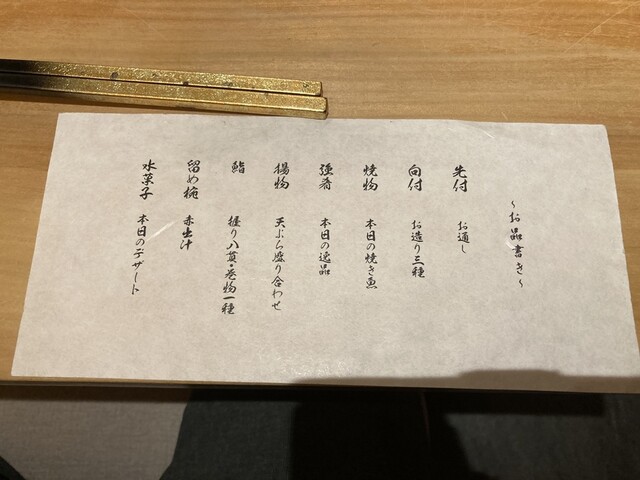 ～お品書き～
先付　お通し
向付　お造り三種
焼物　本日の焼き魚
強肴　本日の逸品
揚物　天ぷら盛り合わせ
鮨　握り八貫・巻物一種
留め椀　赤出汁
水菓子　本日のデザート